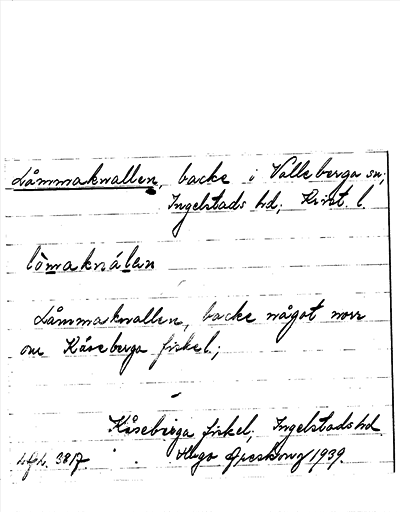 Låmmaknallen, backe i Valleberga sn;
Ingelstads hd; Krist. l.
lòmaknálen
Låmmaknallen, backe något norr
om Kåseberga fiskel.;
Kåseberga fiskel; Ingelstads hd.
Hugo Areskoug 1939.